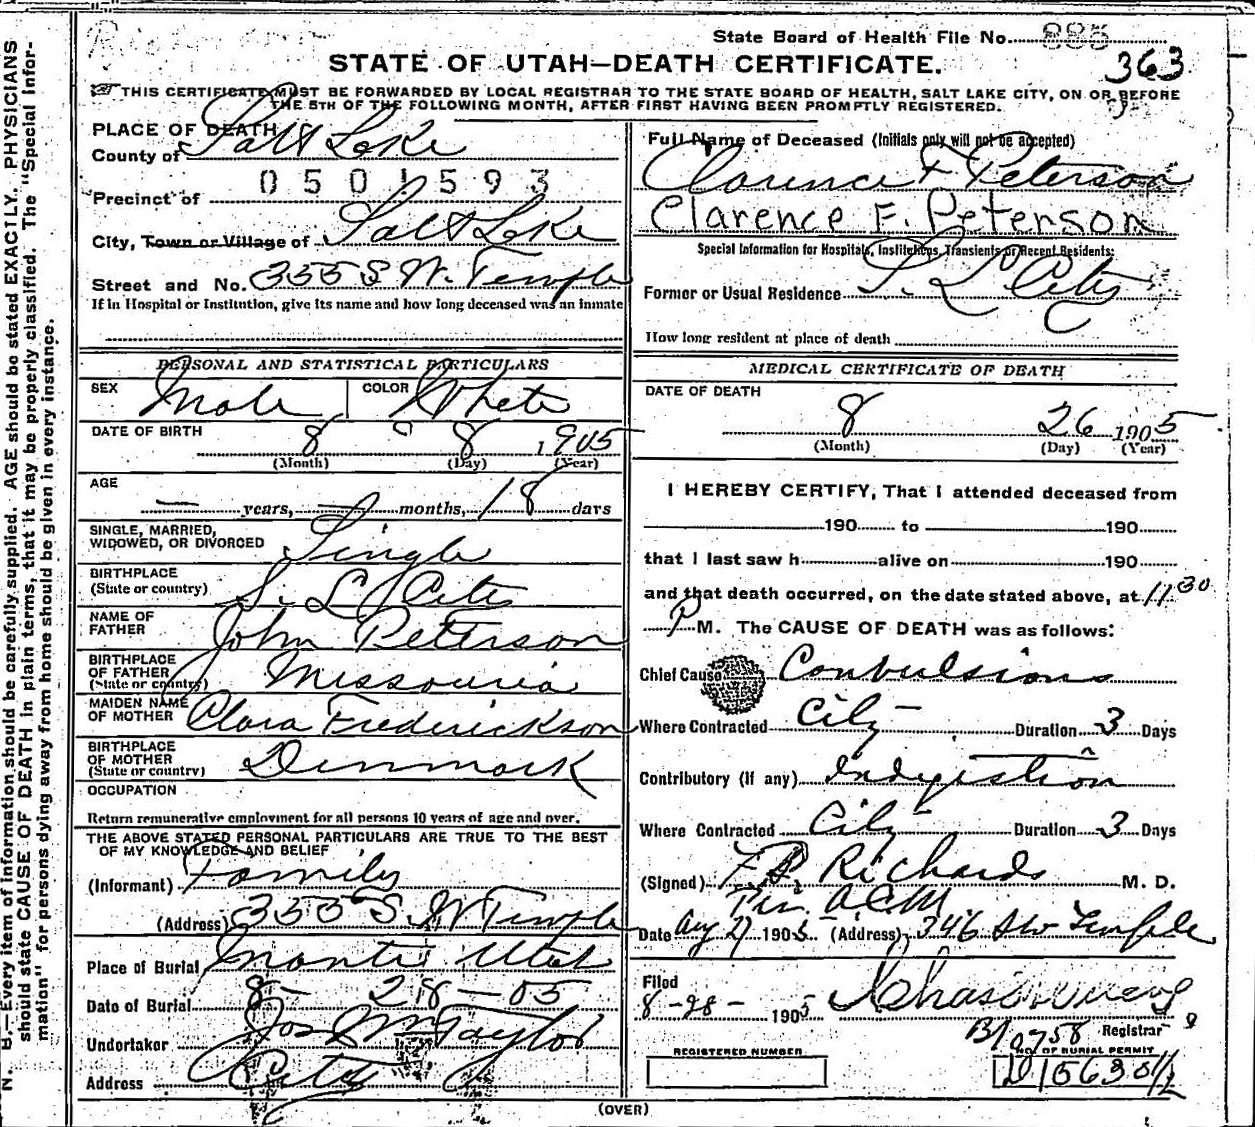 N. B.—Every item of information should be carefully supplied. AGE should be stated EXACTLY. PHYSICIANS
should state CAUSE OF DEATH in plain terms, that it may be properly classified. The "Special Infor-
mation" for persons dying away from home should be given in every instance.
State Board of Health File No. 885
363
STATE OF UTAH—DEATH CERTIFICATE.
THIS CERTIFICATE MUST BE FORWARDED BY LOCAL REGISTRAR TO THE STATE BOARD OF HEALTH, SALT LAKE CITY, ON OR BEFORE
THE 5TH OF THE FOLLOWING MONTH, AFTER FIRST HAVING BEEN PROMPTLY REGISTERED.
PLACE OF DEATH
County of Salt Lake
0501593
Precinct of
City, Town or Village of Salt Lake
Street and No. 355 S W. Temple
If in Hospital or Institution, give its name and how long deceased was an inmate
PERSONAL AND STATISTICAL PARTICULARS
SEX Male COLOR White
DATE OF BIRTH
8 8 1905
(Month) (Day) (Year)
AGE
— years, — months, 18 days
SINGLE, MARRIED,
WIDOWED, OR DIVORCED Single
BIRTHPLACE
(State or country) S. L City
NAME OF
FATHER John Peterson
BIRTHPLACE
OF FATHER
(State or country) Missouria
MAIDEN NAME
OF MOTHER Clara Frederickson
BIRTHPLACE
OF MOTHER
(State or country) Denmark
OCCUPATION
Return remunerative employment for all persons 10 years of age and over.
THE ABOVE STATED PERSONAL PARTICULARS ARE TRUE TO THE BEST
OF MY KNOWLEDGE AND BELIEF
(Informant) Family
(Address) 355 S. W Temple
Place of Burial Manti Utah
Date of Burial 8 – 28 – 05
Undertaker Jos Wm Taylor
Address City
Full Name of Deceased (Initials only will not be accepted)
Clarence F Peterson
Clarence F. Peterson
Special Information for Hospitals, Institutions, Transients or Recent Residents:
Former or Usual Residence S. L City
How long resident at place of death
MEDICAL CERTIFICATE OF DEATH
DATE OF DEATH
8 26 1905
(Month) (Day) (Year)
I HEREBY CERTIFY, That I attended deceased from
190 to 190
that I last saw h alive on 190
and that death occurred, on the date stated above, at 11.30
P M. The CAUSE OF DEATH was as follows:
Chief Cause Convulsions
Where Contracted City Duration 3 Days
Contributory (if any) Indigestion
Where Contracted City Duration 3 Days
(Signed) F.S. Richards M. D.
Per. A.C.M
Date Aug 27 1905 (Address) 346 So W Temple
Filed
8-28- 1905
Registrar
REGISTERED NUMBER
NO. OF BURIAL PERMIT
(OVER)